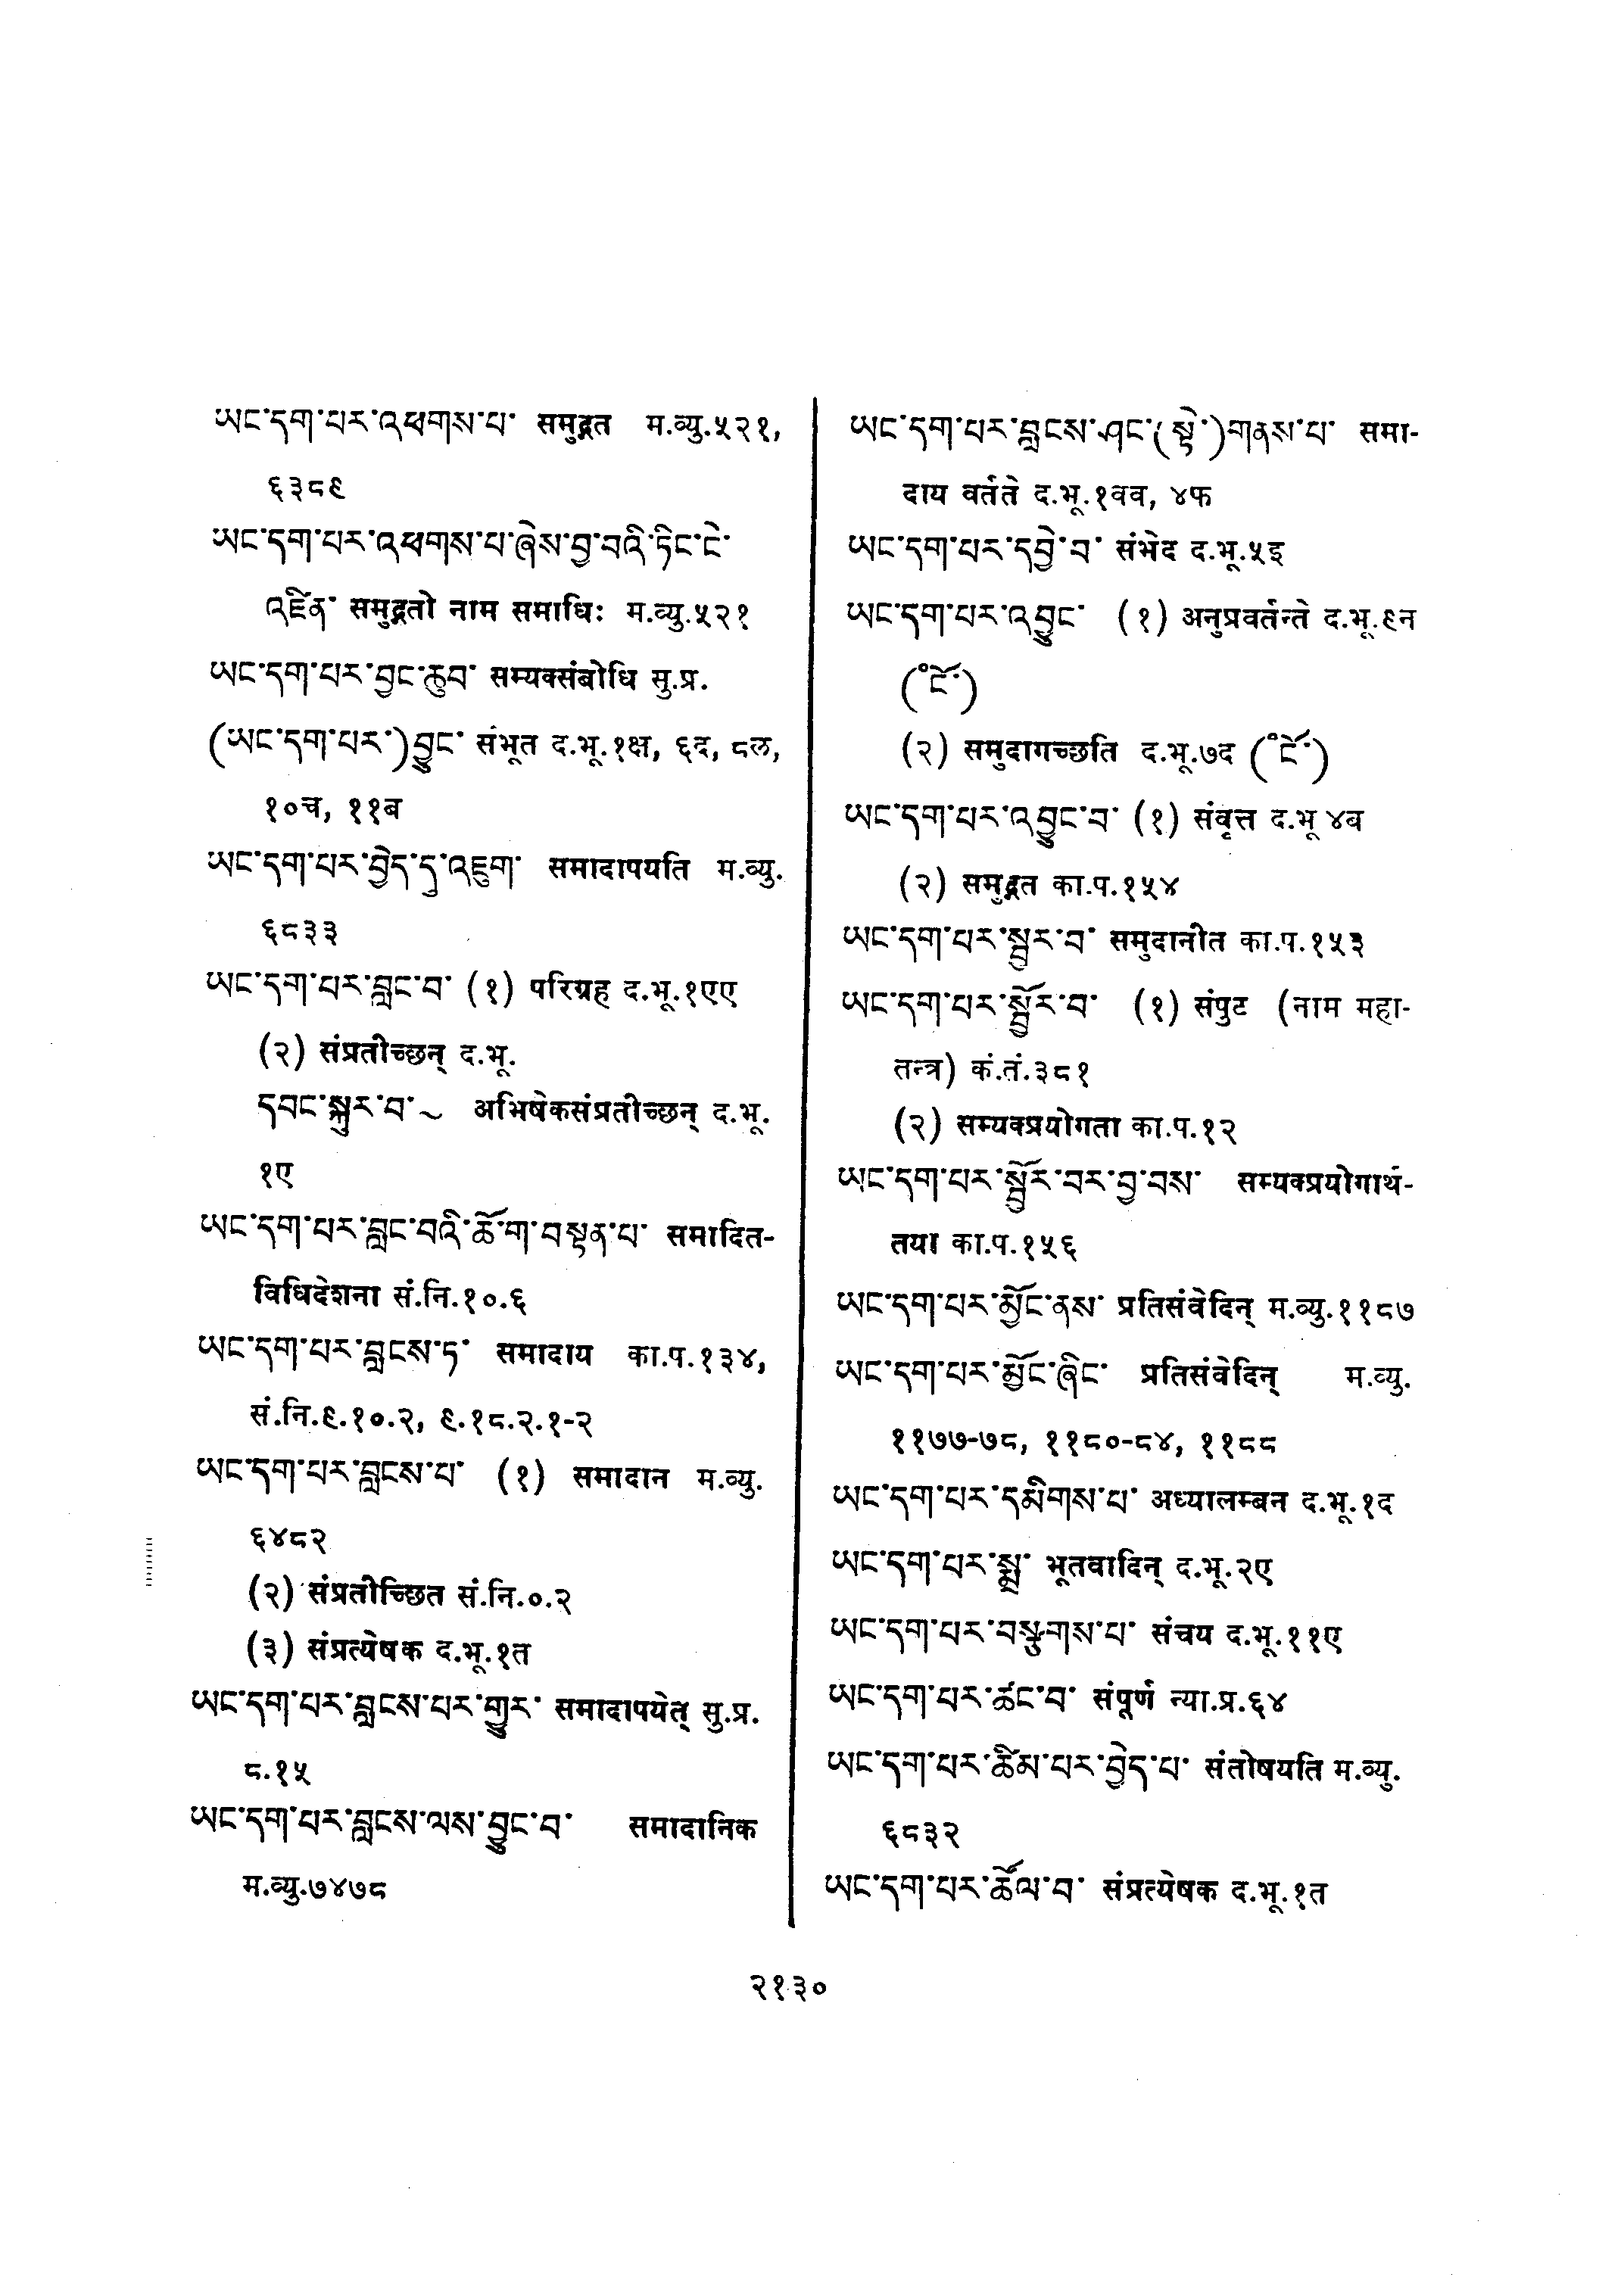 ཡང་དག་པར་འཕགས་པ་ समुद्गत म.व्यु.५२१,
६३८९
ཡང་དག་པར་འཕགས་པ་ཞེས་བྱ་བའི་ཏིང་ངེ་
འཛིན་ समुद्गतो नाम समाधिः म.व्यु.५२१
ཡང་དག་པར་བྱང་ཆུབ་ सम्यक्संबोधि सु.प्र.
(ཡང་དག་པར་)བྱུང་ संभूत द.भू.१क्ष, ६द, ८ल,
१०च, ११ब
ཡང་དག་པར་བྱེད་དུ་འཇུག་ समादापयति म.व्यु.
६८३३
ཡང་དག་པར་བླང་བ་ (१) परिग्रह द.भू.१एए
(२) संप्रतीच्छन् द.भू.
དབང་སྐུར་བ་~ अभिषेकसंप्रतीच्छन् द.भू.
१ए
ཡང་དག་པར་བླང་བའི་ཆོ་ག་བསྟན་པ་ समादित-
विधिदेशना सं.नि.१०.६
ཡང་དག་པར་བླངས་ཏ་ समादाय का.प.१३४,
सं.नि.९.१०.२, ९.१८.२.१-२
ཡང་དག་པར་བླངས་པ་ (१) समादान म.व्यु.
६४८२
(२) संप्रतीच्छित सं.नि.०.२
(३) संप्रत्येषक द.भू.१त
ཡང་དག་པར་བླངས་པར་གྱུར་ समादापयेत् सु.प्र.
८.१५
ཡང་དག་པར་བླངས་ལས་བྱུང་བ་ समादानिक
म.व्यु.७४७८
ཡང་དག་པར་བླངས་ཤང་(སྟེ་)གནས་པ་ समा-
दाय वर्तते द.भू.१वव, ४फ
ཡང་དག་པར་དབྱེ་བ་ संभेद द.भू.५इ
ཡང་དག་པར་འབྱུང་ (१) अनुप्रवर्तन्ते द.भू.९न
(°ངོ་)
(२) समुदागच्छति द.भू.७द (°ངོ་)
ཡང་དག་པར་འབྱུང་བ་ (१) संवृत्त द.भू ४ब
(२) समुद्गत का.प.१५४
ཡང་དག་པར་སྦྱར་བ་ समुदानीत का.प.१५३
ཡང་དག་པར་སྦྱོར་བ་ (१) संपुट (नाम महा-
तन्त्र) कं.तं.३८१
(२) सम्यक्प्रयोगता का.प.१२
ཡང་དག་པར་སྦྱོར་བར་བྱ་བས་ सम्यक्प्रयोगार्थ-
तया का.प.१५६
ཡང་དག་པར་མྱོང་ནས་ प्रतिसंवेदिन् म.व्यु.११८७
ཡང་དག་པར་མྱོང་ཞིང་ प्रतिसंवेदिन् म.व्यु.
११७७-७८, ११८०-८४, ११८८
ཡང་དག་པར་དམིགས་པ་ अध्यालम्बन द.भू.१द
ཡང་དག་པར་སྨྲ་ भूतवादिन् द.भू.२ए
ཡང་དག་པར་བསྩགས་པ་ संचय द.भू.११ए
ཡང་དག་པར་ཚང་བ་ संपूर्ण न्या.प्र.६४
ཡང་དག་པར་ཚིམ་པར་བྱེད་པ་ संतोषयति म.व्यु.
६८३२
ཡང་དག་པར་ཚོལ་བ་ संप्रत्येषक द.भू.१त
२१३०